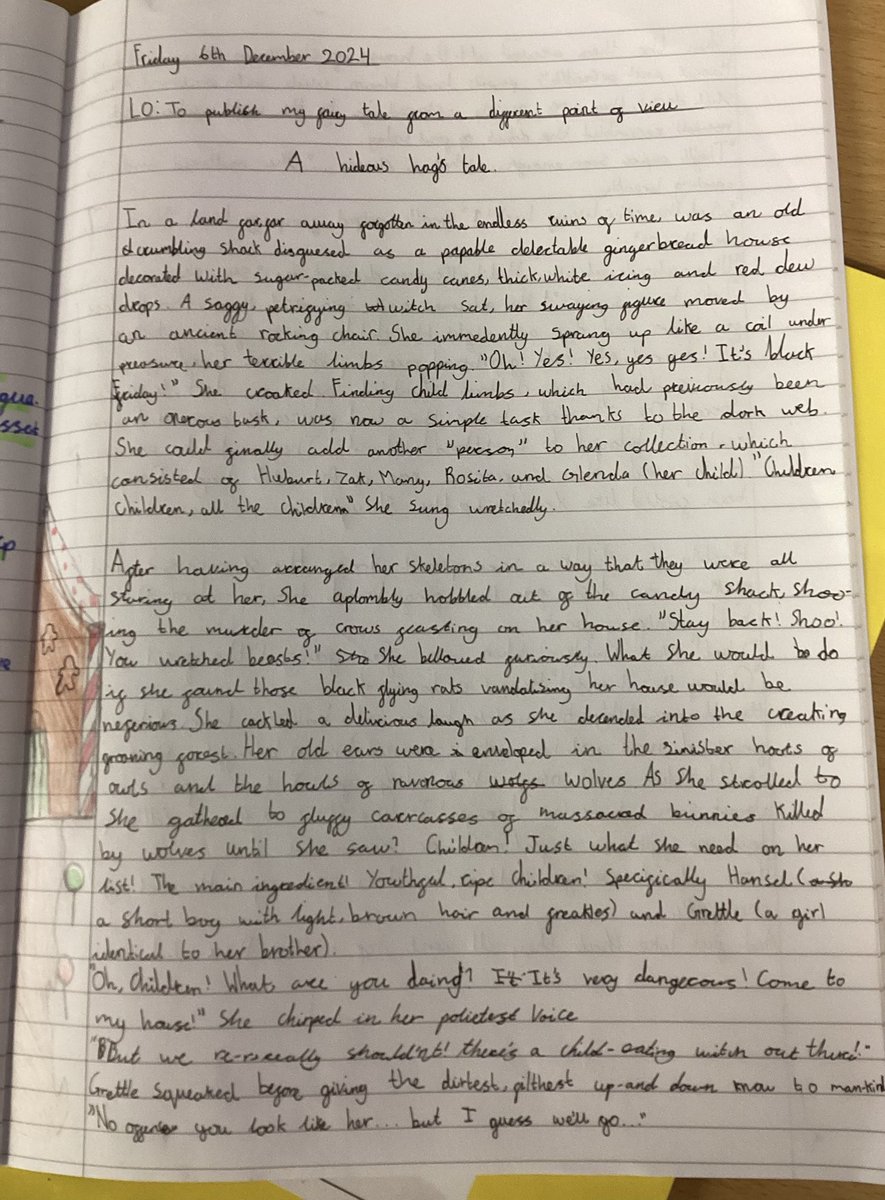 Friday 6th December 2024
LO: To publish my fairy tale from a different point of view
A hideous hag's tale.
In a land far,far away forgotten in the endless ruins of time, was an old
crumbling shack disguesed as a papable delectable gingerbread house
decorated with sugar-packed candy canes, thick,white icing and red dew
drops. A saggy, petrifying witch sat, her swaying figure moved by
an ancient rocking chair. She immedently sprang up like a coil under
preasure, her terrible limbs popping. "Oh! Yes! Yes, yes yes! It's black
Friday!" She croaked. Finding child limbs, which had previously been
an onerous task, was now a simple task thanks to the dark web.
She could finally add another "person" to her collection, which
consisted of Huburt, Zak, Mary, Rosita, and Glenda (her child) "Children
Children, all the children" She sung wretchedly.
After having arranged her skeletons in a way that they were all
staring at her, She aplombly hobbled out of the candy shack, shoo-
ing the murder of crows feasting on her house. "Stay back! Shoo!
You wretched beasts!" She bellowed furiously. What she would do
if she found those black flying rats vandalising her house would be
neferious. She cackled a delicious laugh as she decended into the creaking
groaning forest. Her old ears were enveloped in the sinister hoots of
owls and the howls of ravonous wolves As she strolled to
She gathead to fluffy carcasses of massacred bunnies killed
by wolves until she saw? Children! Just what she need on her
list! The main ingredient! Youthful, ripe children! Specifically Hansel (
a short boy with light, brown hair and freakles) and Grettle (a girl
identical to her brother).
"Oh, Children! What are you doing? It's very dangerous! Come to
my house!" She chirped in her polietest voice
"But we re-reeally should'nt! there's a child-eating witch out there!"
Grettle squeaked befor giving the dirtest, filthest up-and down know to man-kind
"No offence you look like her... but I guess we'll go..."